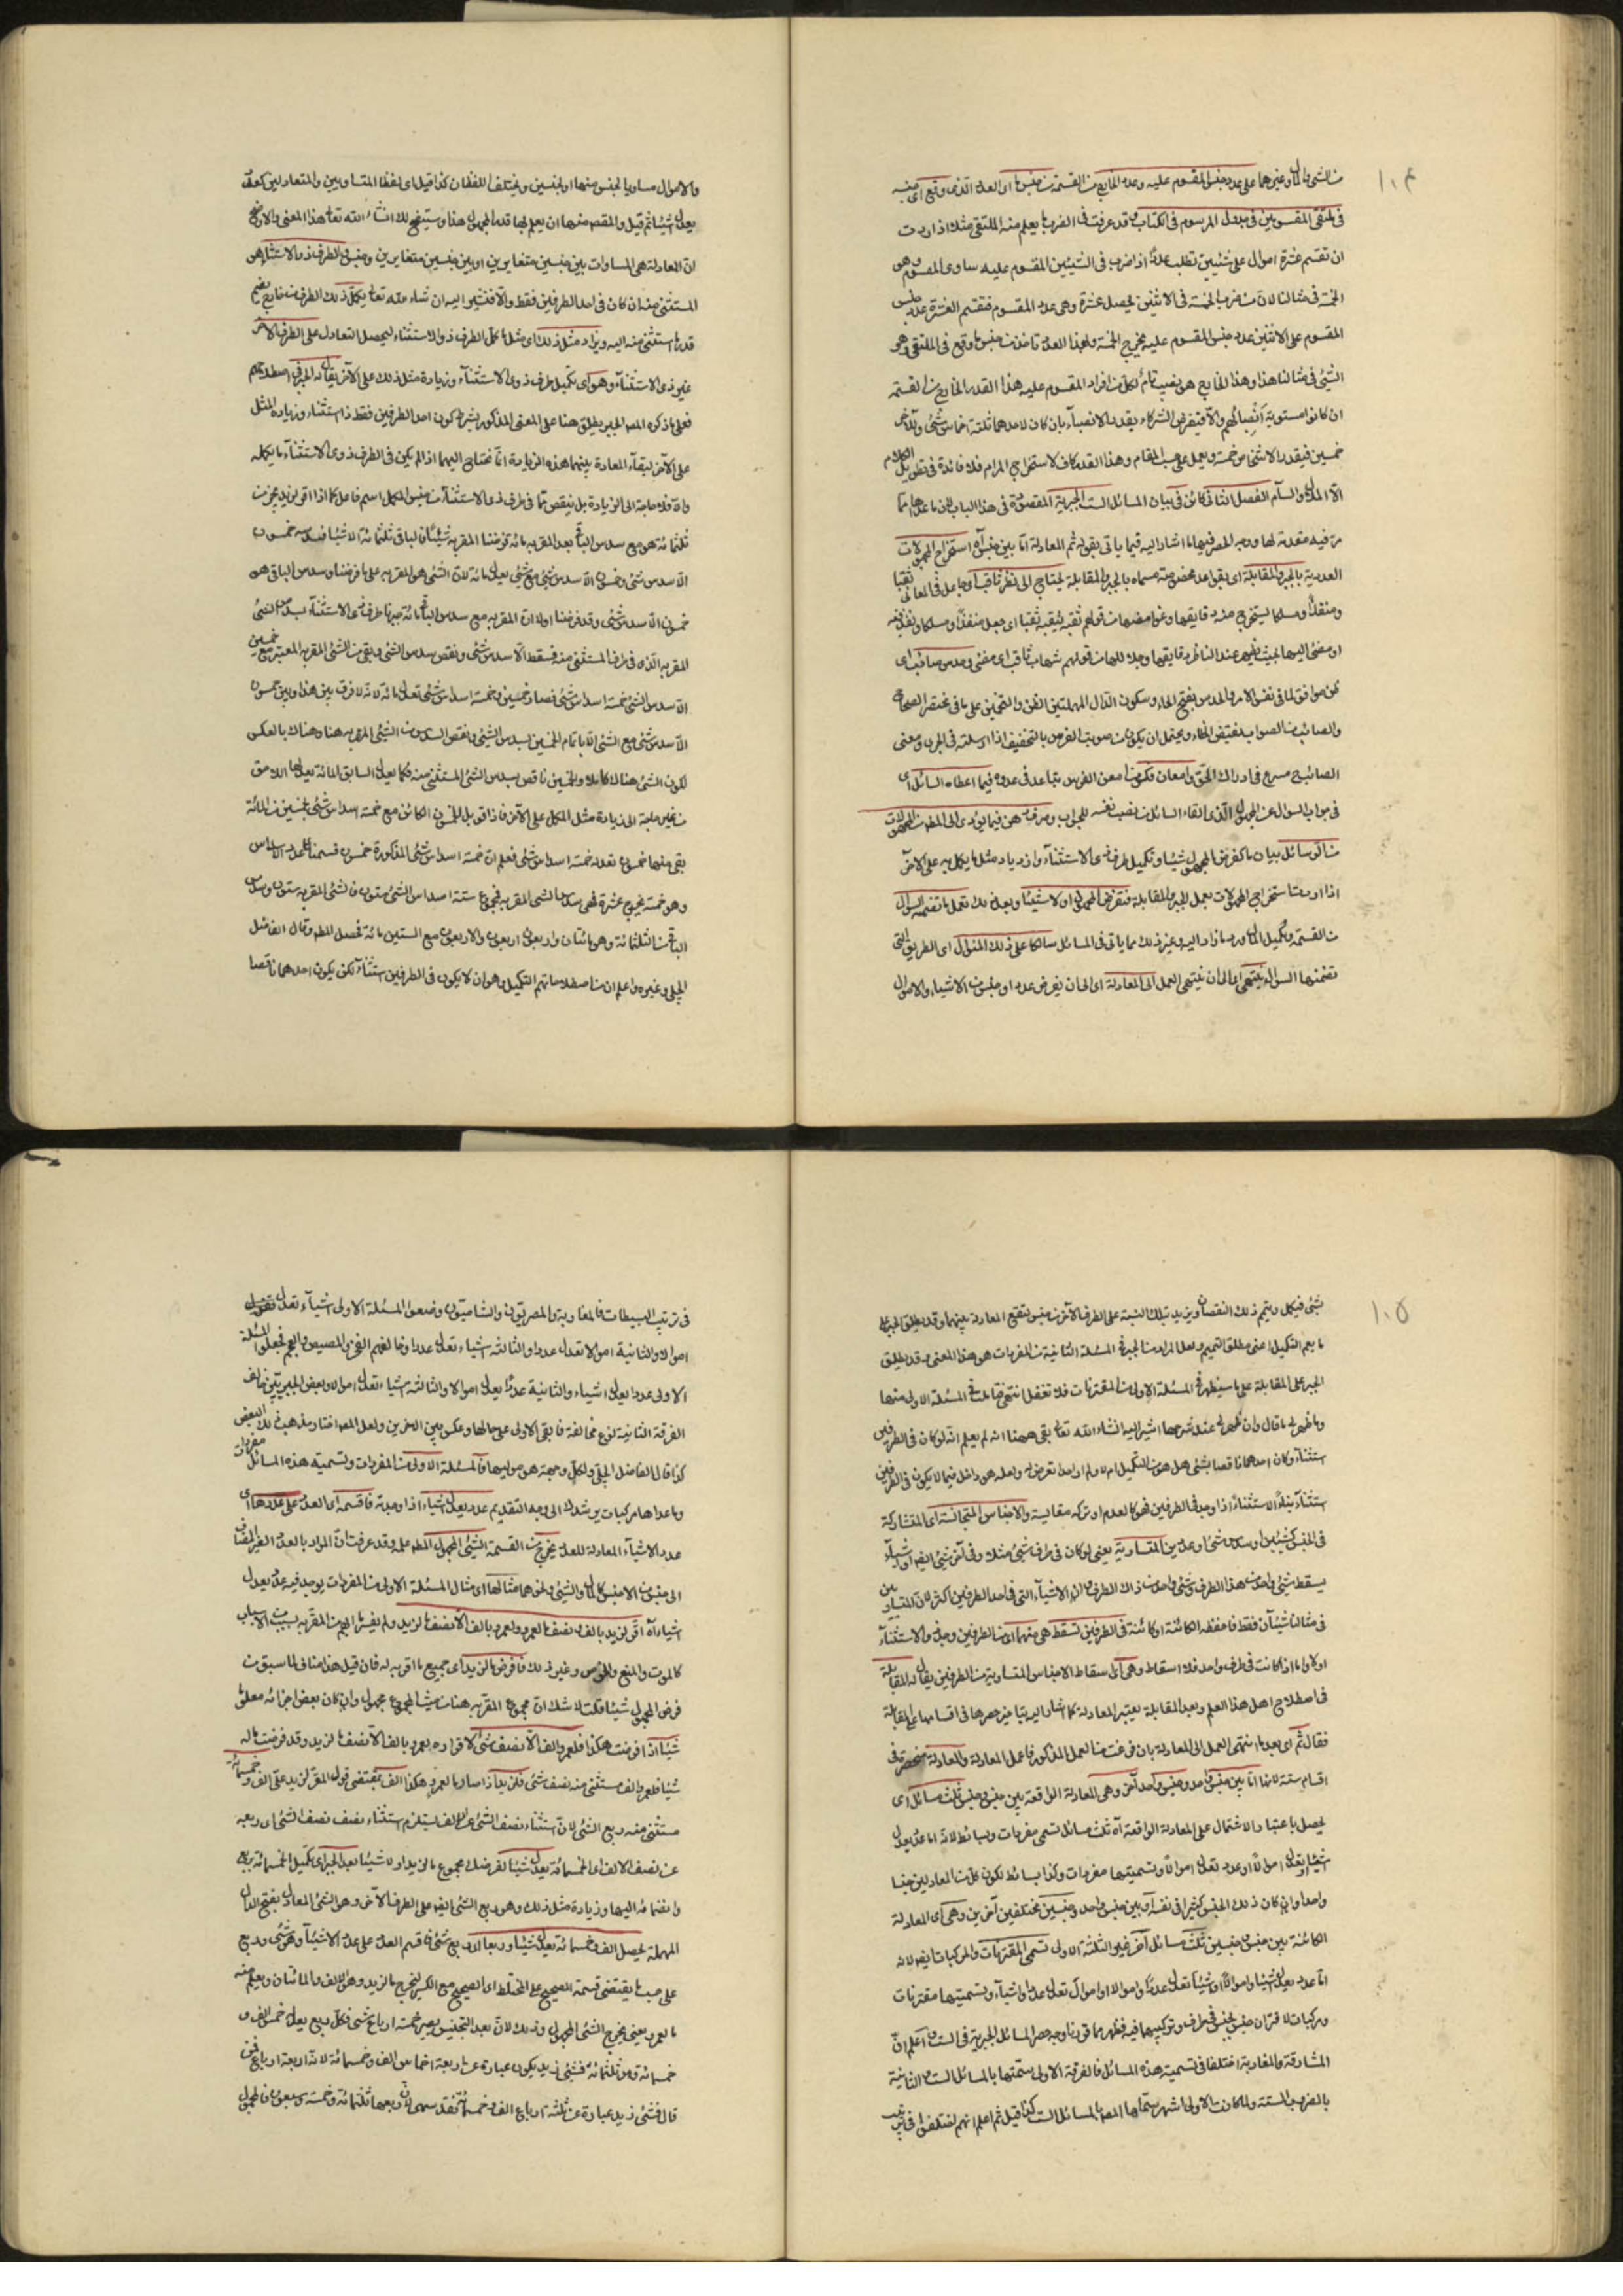 ١٠۴
من الشئ والمال وغيرهما على عدد جنس المقسوم عليه وعدد الخارج من القسمة من جنس ما اى العدد الذى وقع اى جنسه
فى ملتقى المقسومين فى جدول المرسوم فى الكتاب وقد عرفت فى الضرب ما يعلم منه الملتقى مثلا اذا اردت
ان تقسم عشرة اموال على شيئين تطلب عددا اذا ضرب فى الشيئين المقسوم عليه ساوى المقسوم وهو
الخمسة فى مثالنا لان من ضرب الخمسة فى الاثنين يحصل عشرة وهى عدد المقسوم فتقسم العشرة عدد جنس
المقسوم على الاثنين عدد جنس المقسوم عليه يخرج الخمسة ولهذا العدد تأخذ من جنس ما وقع فى الملتقى وهو
الشئ فى مثالنا هذا وهذا الخارج هو نصيب تام لكل من افراد المقسوم عليه هذا القدر الخارج من القسمة
ان كانوا مستوية انصبائهم والا فيفرض الشركاء بقدر الانصباء بان كان لاحدهما ثلثة اخماس شئ وللآخر
خمسين فيقدر الاشخاص خمسة ويعمل على حسب المقام وهذا القدر كاف لاستخراج المرام فلا فائدة فى تطويل الكلام
الا الملال والسآم الفصل الثانى كائن فى بيان المسائل الست الجبرية المقصودة فى هذا الباب لان ما عداها مما
مر فيه مقدمة لها ووجه الحصر فيها ما اشار اليه فيما يأتى بقوله ثم المعادلة اما بين جنس آه استخراج المجهولات
العددية بالجبر والمقابلة اى بقواعد مخصوصة مسماه بالجبر والمقابلة يحتاج الى نظر ثاقب اى جاعل فى المعانى ثقبا
ومنفذا ومسلكا يستخرج منه دقايقها وغوامضها من قولهم ثقبه يثقبه ثقبا اى جعل منفذا ومسلكا ونفذ فيه
او مضئ اليها بحيث يظهر عند الناظر دقايقها وجلائلها من قولهم شهاب ثاقب اى مضئ وحدس صائب اى
ظن موافق لما فى نفس الامر والحدس بفتح الحاء وسكون الدال المهملتين الظن والتخمين على ما فى مختصر الصحاح
والصائب من الصواب نقيض الخطاء ويحتمل ان يكون من صوبت الفرس بالتخفيف اذا ارسلته فى الجرى ومعنى
الصائب ح مسرع فى ادراك الحق وامعان فكر من امعن الفرس تباعد فى عدوه فيما اعطاه السائل اى
فى جواب السؤال عن المجهول الذى القاه السائل من نصب نفسه للجواب وصرف ذهن فيما يؤدى الى المطلوب من المجهولات
من الوسائل بيان ما كفرض المجهول شيئا وتكميل طرف ذى الاستثناء وازدياد مثل ما يكمل به على الآخر
اذا اردت استخراج المجهولات بعمل الجبر والمقابلة فتفرض المجهول اولا شيئا وبعد ذلك تعمل ما تضمنه السؤال
من القسمة وتكميل المال ورد ما زاد اليه وغير ذلك مما يأتى فى المسائل سالكا على ذلك المنوال اى الطريق التى
تضمنها السؤال لينتهى اى الى ان ينتهى العمل الى المعادلة اى الى ان يفرض عدد او جنس من الاشياء والاموال
والاموال مساويا لجنس منها او لجنسين ويختلف اللفظان كذا قيل اى لفظا المتساويين والمتعادلين كعدد
يعدل شيئا ثم قيل والمقصود منهما ان يعلم لها قدر المجهول هذا وسيتضح لك انشاء الله تعالى هذا المعنى والاوضح
ان المعادلة هى المساوات بين جنسين متغايرين او بين جنسين متغايرين وجنس والطرف ذو الاستثناء هو
المستثنى منه ان كان فى احد الطرفين فقط والا فنشير اليه ان شاء الله تعالى يكمل ذلك الطرف
قدر ما استثنى منه اليه ويزاد مثل ذلك اى مثل ما كمل الطرف ذو الاستثناء ليحصل التعادل على الطرف الآخر
غير ذى الاستثناء وهو اى تكميل طرف ذو الاستثناء وزيادة مثل ذلك على الآخر يقال له الجبر فى اصطلاحهم
فعلى ما ذكره المصنف الجبر يطلق هنا على المعنى المذكور بشرط كون احد الطرفين فقط ذا استثناء وزيادة المثل
على الآخر لبقاء المعادلة بينهما هذه الزيادة انما نحتاج اليها اذا لم يكن فى الطرف ذوى الاستثناء ما يكمله
والا فلا حاجة الى الزيادة بل ينقص مما فى طرف ذى الاستثناء من جنس المكمل اسم فاعل كما اذا اقر لزيد بجزء من
ثلثمائة هو مع سدس الباقى بعد المقر به مائة فرضنا المقر به شيئا فالباقى ثلثمائة الا شيئا فسدسه خمسون
الا سدس شئ وخمسون الا سدس شئ مع شئ يعدل مائة لان الشئ هو المقر به على ما فرضنا وسدس الباقى هو
خمسون الا سدس شئ وقد فرضنا اولا ان المقر به مع سدس الباقى مائة جبرنا طرف ذى الاستثناء بسدس الشئ
المقر به الذى فى طرف المستثنى منه فسقط الا سدس شئ ونقص سدس الشئ وبقى من الشئ المقر به المعتبر مع خمسين
الا سدس الشئ خمسة اسداس شئ فصار خمسين وخمسة اسداس شئ تعدل مائة لانه لا فرق بين هذا وبين خمسون
الا سدس شئ مع الشئ الا باتمام الخمسين بسدس الشئ ونقص السدس من الشئ المقر به هنا وهناك بالعكس
لكون الشئ هناك كاملا والخمسين ناقص بسدس الشئ المستثنى منه فكما يعدل السابق المائة يعدلها اللاحق
من غير حاجة الى زيادة مثل المكمل على الآخر فاذا قوبل الخمسون الكائن مع خمسة اسداس شئ بخمسين من المائة
بقى منها خمسون تعدله خمسة اسداس شئ فعلم ان خمسة اسداس شئ المذكورة خمسون قسمناه على عدد الاسداس
وهو خمسة يخرج عشرة فهى سدس الشئ المقر به فمجموع ستة اسداس الشئ ستون فالشئ المقر به ستون وسدس
الباقى من الثلثمائة وهو مائتان واربعون اربعون والاربعون مع الستين مائة فحصل المطلوب وقال الفاضل
الجلى وغيره واعلم ان من اصطلاحاتهم التكميل وهو ان لا يكون فى الطرفين استثناء لكن يكون احدهما ناقصا
١٠٥
بشئ فيكمل ويتم ذلك النقصان ويزيد بتلك النسبة على الطرف الآخر من جنس لتقع المعادلة بينهما وقد يطلق الجبر على
ما يعم التكميل اعنى مطلق التتميم ولعل المراد من الجبر فى المسئلة الثانية من المفردات هو هذا المعنى وقد يطلق
الجبر على المقابلة على ما سيظهر فى المسئلة الاولى من المقترنات فلا تغفل انتهى فتأمل فى المسئلة الاولى منها
وما ظهر لى ما قال وان ظهر لى عند شرحها اشير اليه انشاء الله تعالى بقى ههنا انه لم يعلم انه لو كان فى الطرفين
استثناء وكان احدهما ناقصا بشئ هل هو من التكميل ام لا ولم ار احدا تعرض له ولعله هو داخل فيما لا يكون فى الطرفين
استثناء بناء الاستثناء اذا وجد فى الطرفين فهو كالعدم او تركه مقايسة والاجناس المتجانسة اى المتشاركة
فى الجنس كشيئين او سدس شئ او عددين المتساوية يعنى لو كان فى طرف شئ مثلا وفى آخر شئ ايضا او اشياء
يسقط شئ واحد من هذا الطرف وشئ واحد من ذاك الطرف وان الاشياء التى فى احد الطرفين اكثر لان المتساويين
فى مثالنا شيئان فقط فاحفظه الكائنة او كائنة فى الطرفين تسقط هى منهما اى من الطرفين وجد والاستثناء
اولا واما اذا كانت فى طرف واحد فلا اسقاط وهى اى اسقاط الاجناس المتساوية من الطرفين يقال له المقابلة
فى اصطلاح اهل هذا العلم وبعد المقابلة يعتبر المعادلة كما اشار اليه بتأخير حصرها فى اقسامها عن المقابلة
فقال ثم اى بعد ما انتهى العمل الى المعادلة بان فرغت من العمل المذكور فاعمل المعادلة والمعادلة منحصرة فى
اقسام ستة لانها اما بين جنس واحد وجنس واحد آخر وهى المعادلة الواقعة بين جنس وجنس ثلث مسائل اى
يحصل باعتبار والاشتمال على المعادلة الواقعة آه ثلث مسائل تسمى مفردات وبسائط لانه اما عدد يعدل
اشياء او يعدل اموالا او عدد تعدل اموالا وتسميتها مفردات وكذا بسائط لكون كل من المعادلين جنسا
واحدا وان كان ذلك الجنس كثيرا فى نفسه او بين جنس واحد وجنسين مختلفين آخرين وهى اى المعادلة
الكائنة بين جنس وجنسين ثلث مسائل آخر غير الثلثة الاولى تسمى المقترنات والمركبات ايضا لانه
اما عدد يعدل اشياء واموالا او شيئا تعدل عددا واموالا او اموال تعدل عددا واشياء وتسميتها مقترنات
ومركبات لاقتران جنس بجنس فى طرف وتركيبها فيه فظهر مما قررنا وجه حصر المسائل الجبرية فى الست اعلم ان
المشارقة والمغاربة اختلفا فى تسمية هذه المسائل فالفرقة الاولى سمتها بالمسائل الست والثانية
بالضروب الستة ولما كانت الاولى اشهر سماها المصنف بالمسائل الست كذا قيل ثم اعلم انهم اختلفوا فى ترتيب
فى ترتيب البسيطات فالمغاربة والمصريون والشاميون وضعوا المسئلة الاولى اشياء تعدل
اموالا والثانية اموالا تعدل عددا والثالثة اشياء تعدل عددا وخالفهم والعجم فجعلوا المسئلة
الاولى عددا يعدل اشياء والثانية عددا يعدل اموالا والثالثة اشياء تعدل اموالا وبعض الجبريين خالف
الفرقة الثانية نوع مخالفة فابقى الاولى على حالها وعكس بين الاخرين ولعل المصنف اختار مذهب ذلك البعض
كذا قال الفاضل الجلى ولكل وجهة هو موليها فالمسئلة الاولى من المفردات وتسمية هذه المسائل مفردات
وما عداها مركبات يرشدك الى وجه التقديم عدد يعدل اشياء اذا وجدته فاقسمه اى العدد على عددها اى
عدد الاشياء المعادلة للعدد يخرج من القسمة الشئ المجهول المطلوب علمه وقد عرفت ان المراد بالعدد الغير المضاف
الى جنس من الاجناس كالمال والشئ ونحوهما مثالها اى مثال المسئلة الاولى من المفردات يوجد فيه عدد يعدل
اشياء آه اقر لزيد بالف ونصف ما لعمرو ولعمرو بالف الا نصف ما لزيد ولم يفسر المبهم من المقر به بسبب من الاسباب
كالموت والمنع والخرس وغير ذلك فافرض ما لزيد اى جميع ما اقر به له فان قيل هذا مناف لما سبق من
فرض المجهول شيئا قلت لا شك ان مجموع المقر به هنا من حيث المجموع مجهول وان كان بعض اجزائه معلوم
شيئا اذا فرضت هكذا فلعمرو الف الا نصف شئ لاقراره لعمرو بالف الا نصف ما لزيد وقد فرضت ما له
شيئا فلعمرو الف مستثنى منه نصف شئ فلزيد اذا صار ما لعمرو هكذا الف بمقتضى قول المقر لزيد على الف وخمسمائة
مستثنى منه ربع الشئ لان استثناء نصف الشئ عن الالف يستلزم استثناء نصف نصف الشئ اى ربعه
عن نصف الالف اى الخمسمائة يعدل شيئا لفرضك مجموع ما لزيد اولا شيئا بعد الجبر اى تكميل الخمسمائة بربع
وانضمامه اليها وزيادة مثل ذلك وهو ربع الشئ ايضا على الطرف الآخر وهو الشئ المعادل بفتح الدال
المهملة يحصل الف وخمسمائة يعدل شيئا وربعا اى ربع شئ فاقسم العدد على عدد الاشياء وهو شئ وربع
على حسب ما يقتضى قسمة الصحيح على المختلط اى الصحيح مع الكسر ليخرج ما لزيد وهو الالف والمائتان ويعلم منه
ما لعمرو يعنى يخرج الشئ المجهول وذلك لان بعد التجنيس يصير خمسة ارباع شئ فكل ربع يعدل خمس الف و
خمسمائة وهو ثلثمائة فشئ زيد يكون عبارة عن اربعة اخماس الف وخمسمائة لانه اربعة ارباع فمن
قال فشئ زيد عبارة عن ثلثة ارباع الف وخمسمائة فقد سهى لان ربعها ثلثمائة وخمسة وسبعون فالمجهول